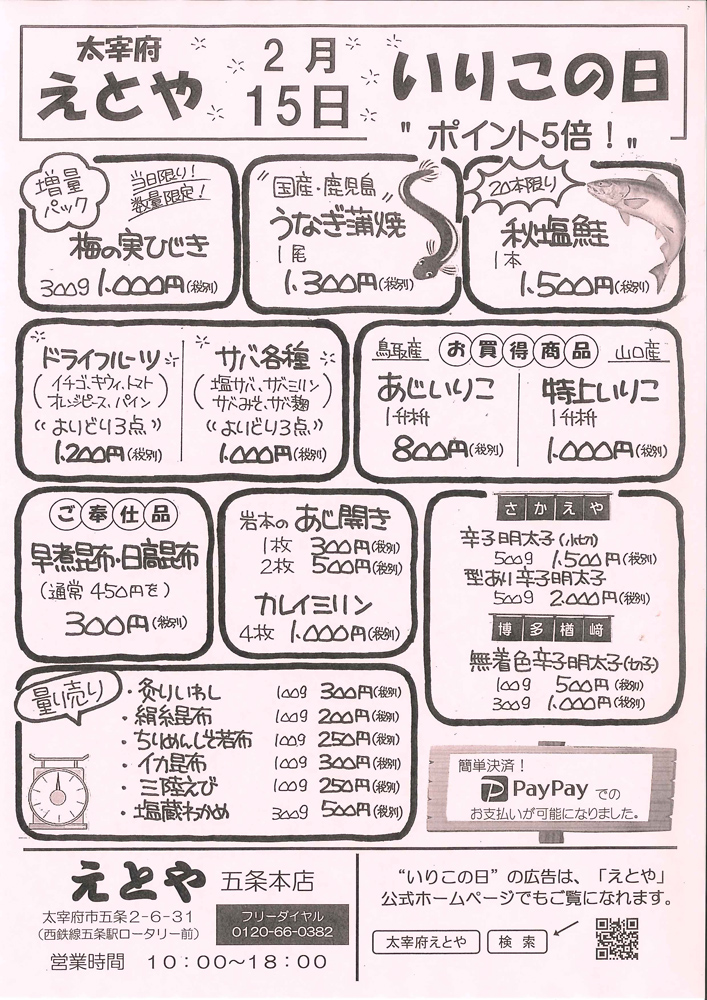 太宰府
えとや
2月
15日
いりこの日
"ポイント5倍！"
増量
パック
当日限り！
数量限定！
梅の実ひじき
300g 1.000円(税別)
"国産・鹿児島"
うなぎ蒲焼
1尾
1.300円(税別)
20本限り
秋塩鮭
1本
1.500円(税別)
ドライフルーツ
(イチゴ、キウイ、トマト
オレンジピース、パイン)
《よりどり3点》
1.200円(税別)
サバ各種
(塩サバ、サバミリン
サバみそ、サバ麹)
《よりどり3点》
1.000円(税別)
お買得商品
鳥取産
あじいりこ
1升枡
800円(税別)
山口産
特上いりこ
1升枡
1.000円(税別)
ご奉仕品
早煮昆布・日高昆布
(通常450円を)
300円(税別)
岩本の あじ開き
1枚 300円(税別)
2枚 500円(税別)
カレイミリン
4枚 1.000円(税別)
さかえや
辛子明太子(小切)
500g 1.500円(税別)
型あり辛子明太子
500g 2.000円(税別)
博多楢﨑
無着色辛子明太子(切子)
100g 500円(税別)
300g 1.000円(税別)
量り売り
・炙りいわし 100g 300円(税別)
・絹糸昆布 100g 200円(税別)
・ちりめんしそ若布 100g 250円(税別)
・イカ昆布 100g 300円(税別)
・三陸えび 100g 250円(税別)
・塩蔵わかめ 300g 500円(税別)
簡単決済！
PayPay での
お支払いが可能になりました。
えとや 五条本店
太宰府市五条2-6-31
(西鉄線五条駅ロータリー前)
フリーダイヤル
0120-66-0382
営業時間 10:00～18:00
"いりこの日"の広告は、「えとや」
公式ホームページでもご覧になれます。
太宰府えとや 検索